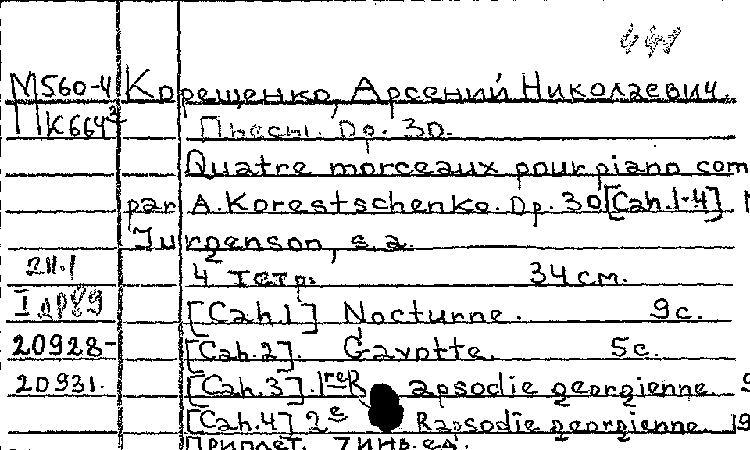 М560-4 Корещенко, Арсений Николаевич.
К664³ Пьесы. Ор. 30.
Quatre morceaux pour piano com
par A. Korestschenko. Op. 30 [Cah.1-4]
Jurgenson, s.a.
4 тетр. 34 см.
[Cah.1] Nocturne. 9с.
20928- [Cah.2]. Gavotte. 5с.
20931. [Cah.3]. 1re Rapsodie georgienne. 9
[Cah.4] 2e Rapsodie georgienne. 19
Приплет. 7 инв. ед.